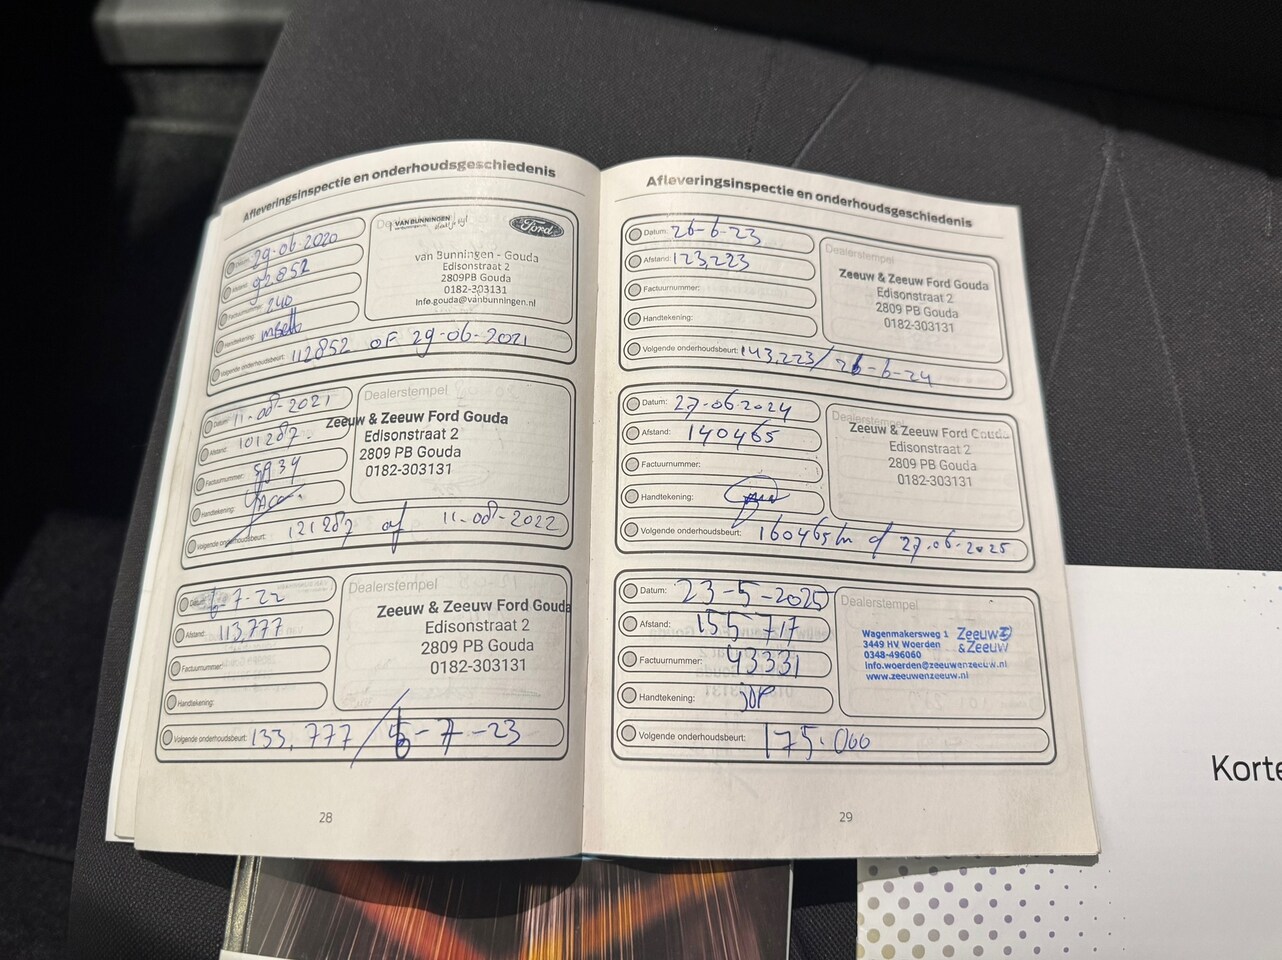 Afleveringsinspectie en onderhoudsgeschiedenis
Datum: 29-06-2020
Afstand: 92852
Factuurnummer: 240
Handtekening:
Volgende onderhoudsbeurt: 112852 OF 29-06-2021
VAN BUNNINGEN
Ford
van Bunningen - Gouda
Edisonstraat 2
2809PB Gouda
0182-303131
Info.gouda@vanbunningen.nl
Datum: 11-08-2021
Afstand: 101287.
Factuurnummer:
Handtekening:
Volgende onderhoudsbeurt: 121287 of 11-08-2022
Dealerstempel
Zeeuw & Zeeuw Ford Gouda
Edisonstraat 2
2809 PB Gouda
0182-303131
Datum: 6-7-22
Afstand: 113,777
Factuurnummer:
Handtekening:
Volgende onderhoudsbeurt: 133,777 / 6-7-23
Dealerstempel
Zeeuw & Zeeuw Ford Gouda
Edisonstraat 2
2809 PB Gouda
0182-303131
28
Afleveringsinspectie en onderhoudsgeschiedenis
Datum: 26-6-23
Afstand: 123,223
Factuurnummer:
Handtekening:
Volgende onderhoudsbeurt: 143,223 / 26-6-24
Dealerstempel
Zeeuw & Zeeuw Ford Gouda
Edisonstraat 2
2809 PB Gouda
0182-303131
Datum: 27-06-2024
Afstand: 140465
Factuurnummer:
Handtekening:
Volgende onderhoudsbeurt: 160465km of 27-06-2025
Dealerstempel
Zeeuw & Zeeuw Ford Gouda
Edisonstraat 2
2809 PB Gouda
0182-303131
Datum: 23-5-2025
Afstand: 155717
Factuurnummer: 43331
Handtekening:
Volgende onderhoudsbeurt: 175.000
Dealerstempel
Wagenmakersweg 1
3449 HV Woerden
0348-496060
Info.woerden@zeeuwenzeeuw.nl
www.zeeuwenzeeuw.nl
Zeeuw
& Zeeuw
29
Korte